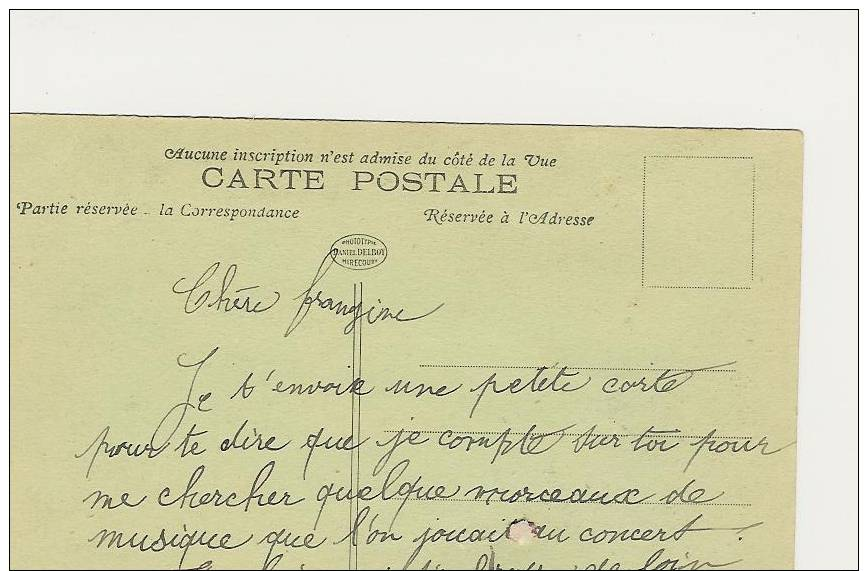 Aucune inscription n'est admise du côté de la Vue
CARTE POSTALE
Partie réservée . la Correspondance
Réservée à l'Adresse
PHOTOTYPIE
DANIEL DELBOY
MIRECOURT
Chère frangine
Je t'envoie une petite carte
pour te dire que je compte sur toi pour
me chercher quelque morceaux de
musique que l'on jouait au concert.
de loin